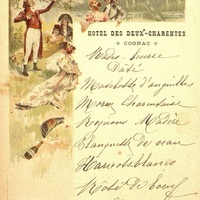 HOTEL DES DEUX-CHARENTES
COGNAC
Pâté
Matelotte d'anguilles
Charentaise
Rognons Madère
Blanquette de veau
Haricots blancs
Rôti de boeuf